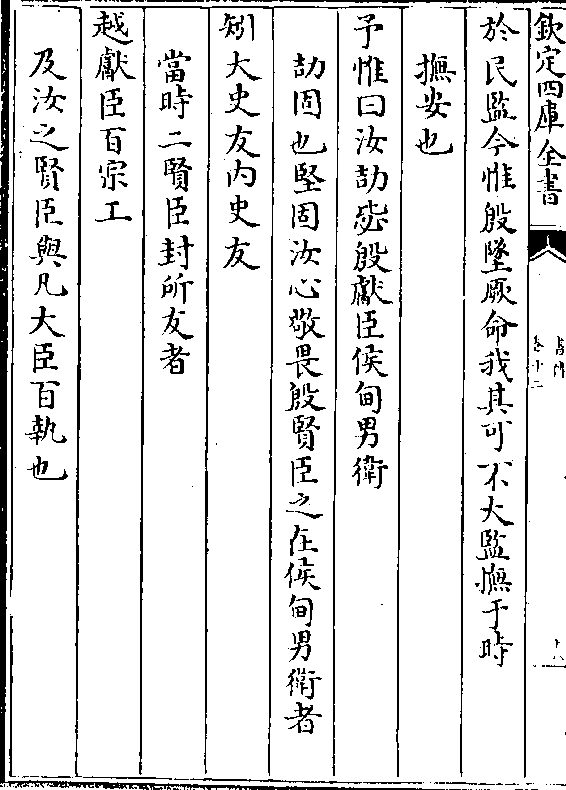 欽定四庫全書
書傳
卷十二
十八
於民監今惟殷墜厥命我其可不大監撫于時
撫安也
予惟曰汝劼毖殷獻臣侯甸男衛
劼固也堅固汝心敬畏殷賢臣之在侯甸男衛者
矧大史友內史友
當時二賢臣封所友者
越獻臣百宗工
及汝之賢臣與凡大臣百執也